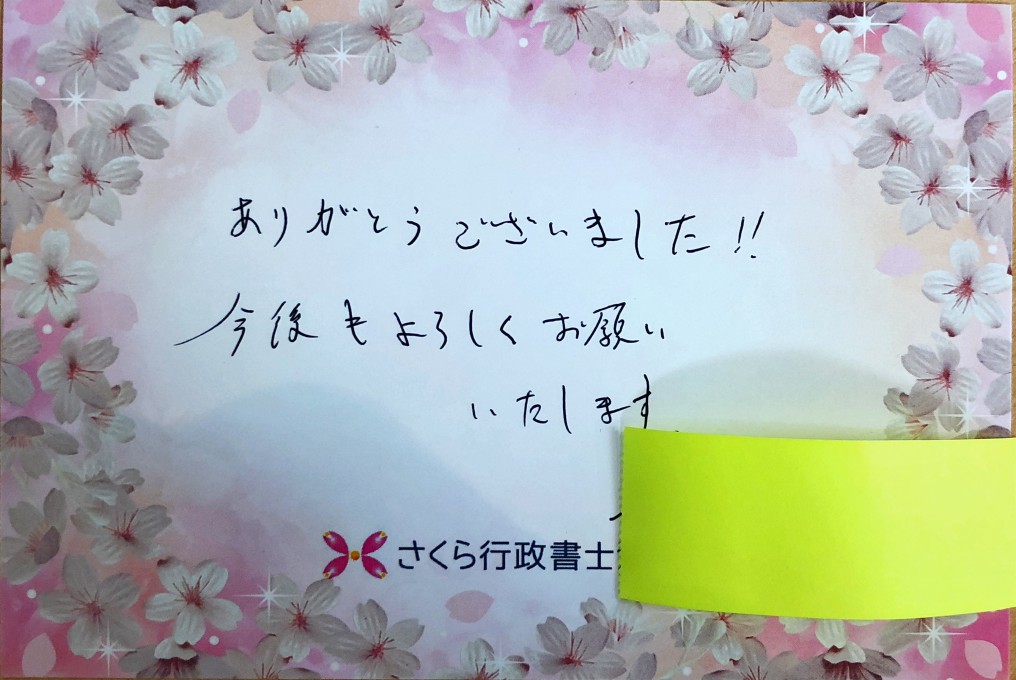 ありがとうございました!!
今後もよろしくお願い
いたします
さくら行政書士